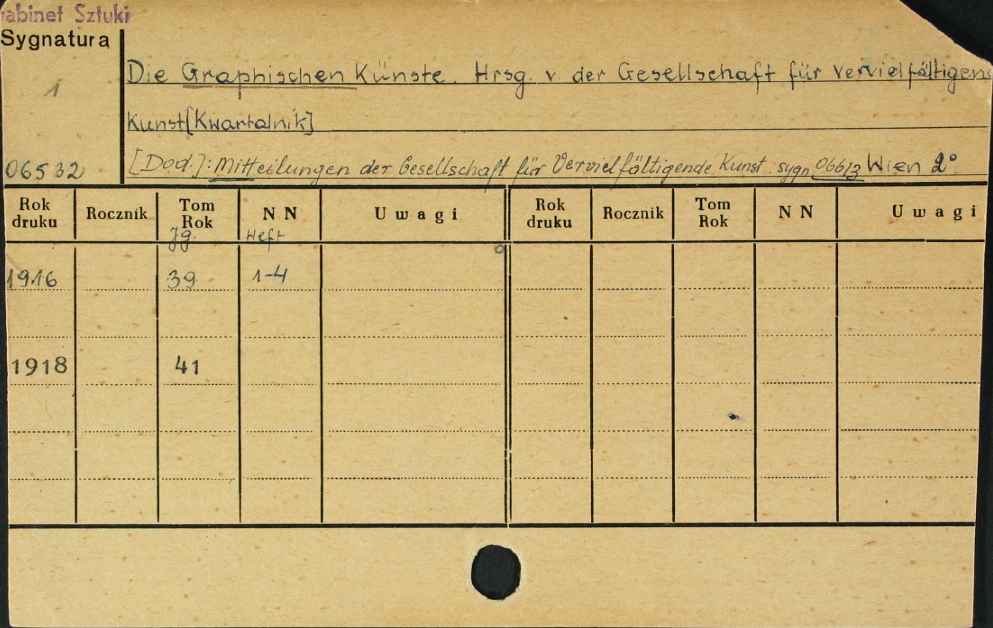 abinet Sztuki
Sygnatura
1
Die Graphischen Künste. Hrsg. v der Gesellschaft für vervielfältigen
Kunst [Kwartalnik]
06532 [Dod.]: Mitteilungen der Gesellschaft für Vervielfältigende Kunst. sygn. 06613 Wien 2°
Rok druku Rocznik Tom Rok NN Uwagi Rok druku Rocznik Tom Rok NN Uwagi
Jg. Heft
1916 39 1-4
1918 41